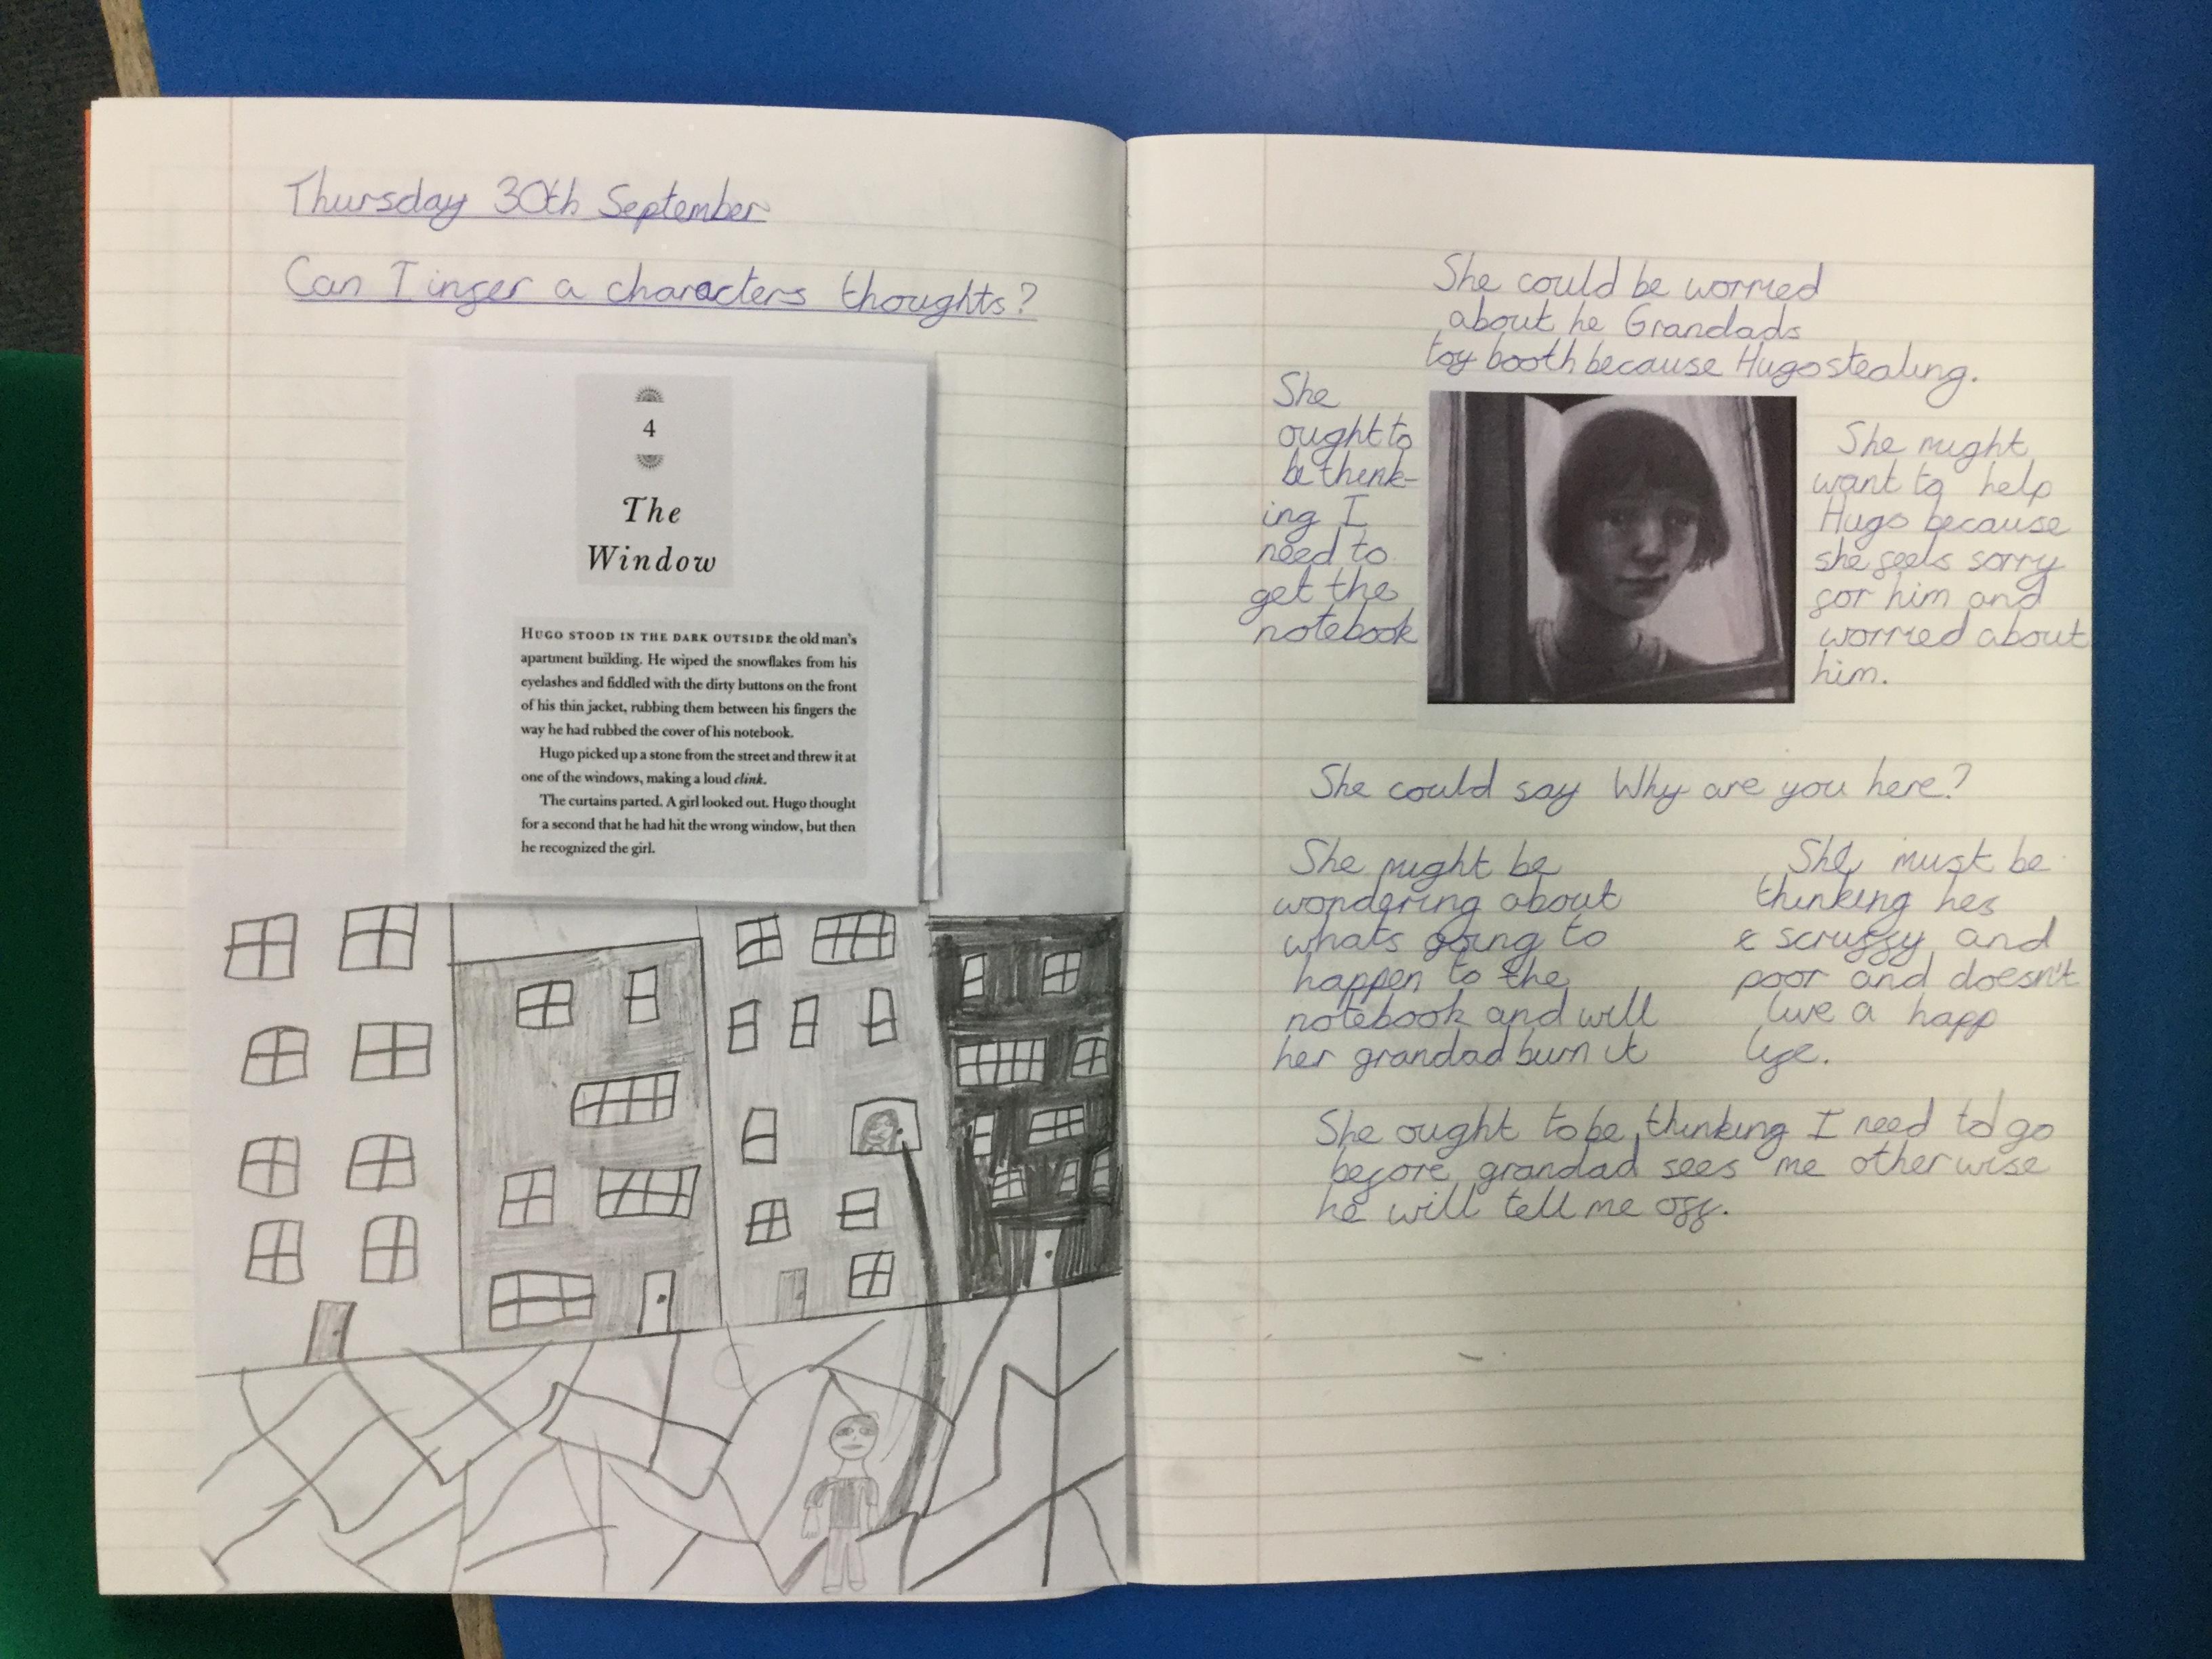 Thursday 30th September
Can I infer a characters thoughts?
4
The
Window
HUGO STOOD IN THE DARK OUTSIDE the old man's
apartment building. He wiped the snowflakes from his
eyelashes and fiddled with the dirty buttons on the front
of his thin jacket, rubbing them between his fingers the
way he had rubbed the cover of his notebook.
Hugo picked up a stone from the street and threw it at
one of the windows, making a loud clink.
The curtains parted. A girl looked out. Hugo thought
for a second that he had hit the wrong window, but then
he recognized the girl.
She could be worried
about he Grandads
toy booth because Hugo stealing.
She
ought to
be think-
ing I
need to
get the
notebook
She might
want to help
Hugo because
she feels sorry
for him and
worried about
him.
She could say Why are you here?
She might be
wondering about
whats going to
happen to the
notebook and will
her grandad burn it
She must be
thinking hes
scruffy and
poor and doesn't
live a happ
life.
She ought to be thinking I need to go
before grandad sees me otherwise
he will tell me off.